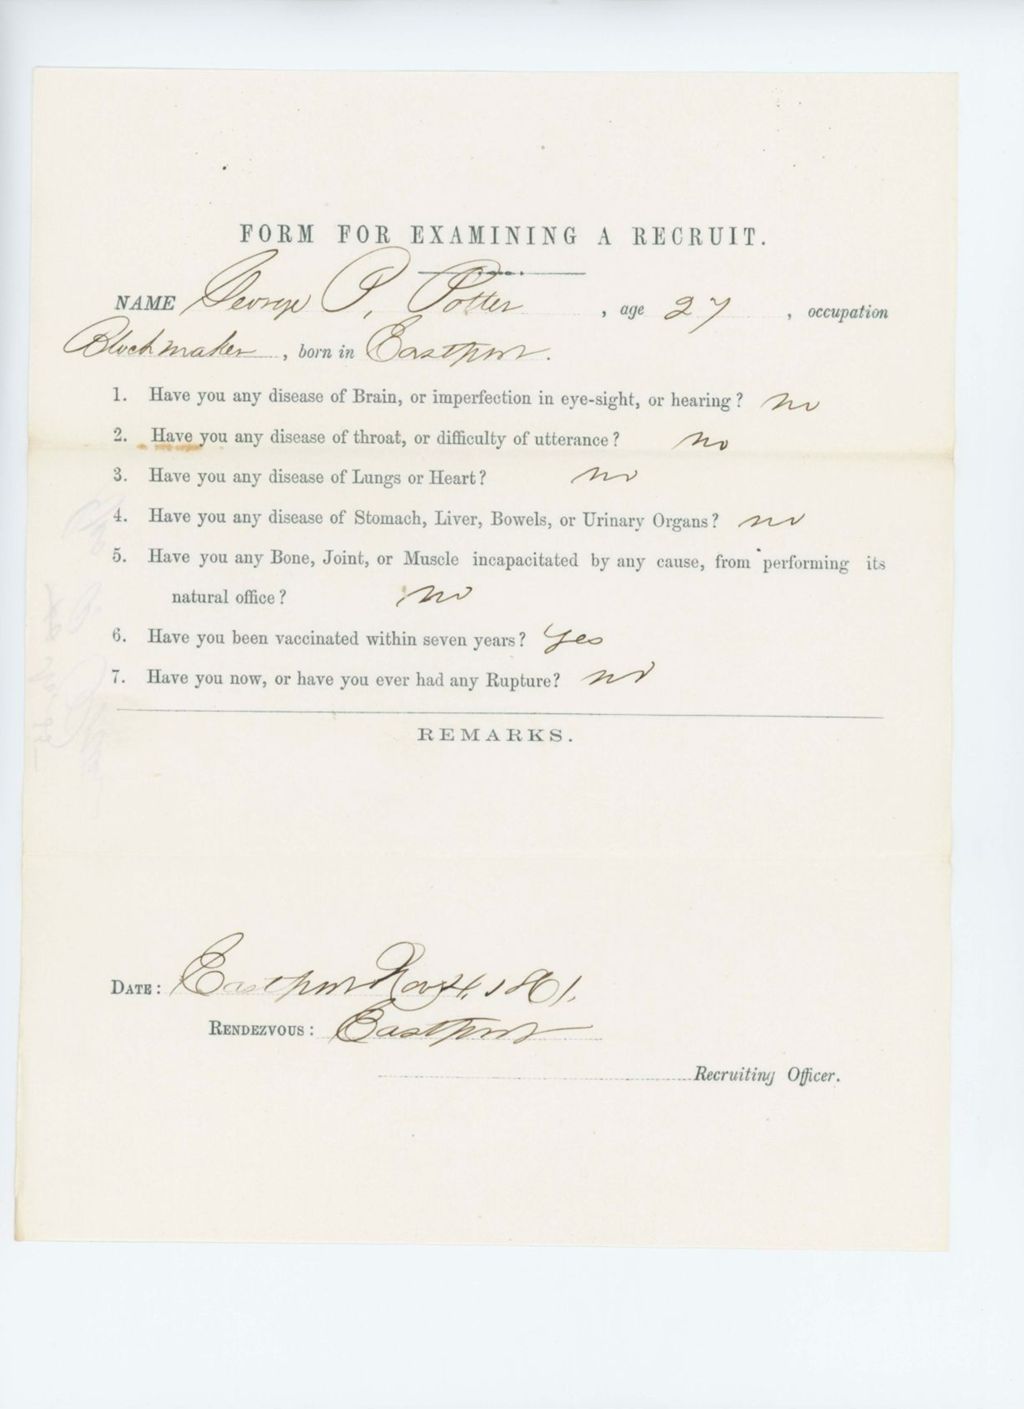 FORM FOR EXAMINING A RECRUIT.
NAME George P. Potter , age 27 , occupation
Blockmaker , born in Eastport.
1. Have you any disease of Brain, or imperfection in eye-sight, or hearing? no
2. Have you any disease of throat, or difficulty of utterance? no
3. Have you any disease of Lungs or Heart? no
4. Have you any disease of Stomach, Liver, Bowels, or Urinary Organs? no
5. Have you any Bone, Joint, or Muscle incapacitated by any cause, from performing its
natural office? no
6. Have you been vaccinated within seven years? Yes
7. Have you now, or have you ever had any Rupture? no
REMARKS.
DATE: Eastport Nov 4, 1861.
RENDEZVOUS: Eastport
Recruiting Officer.